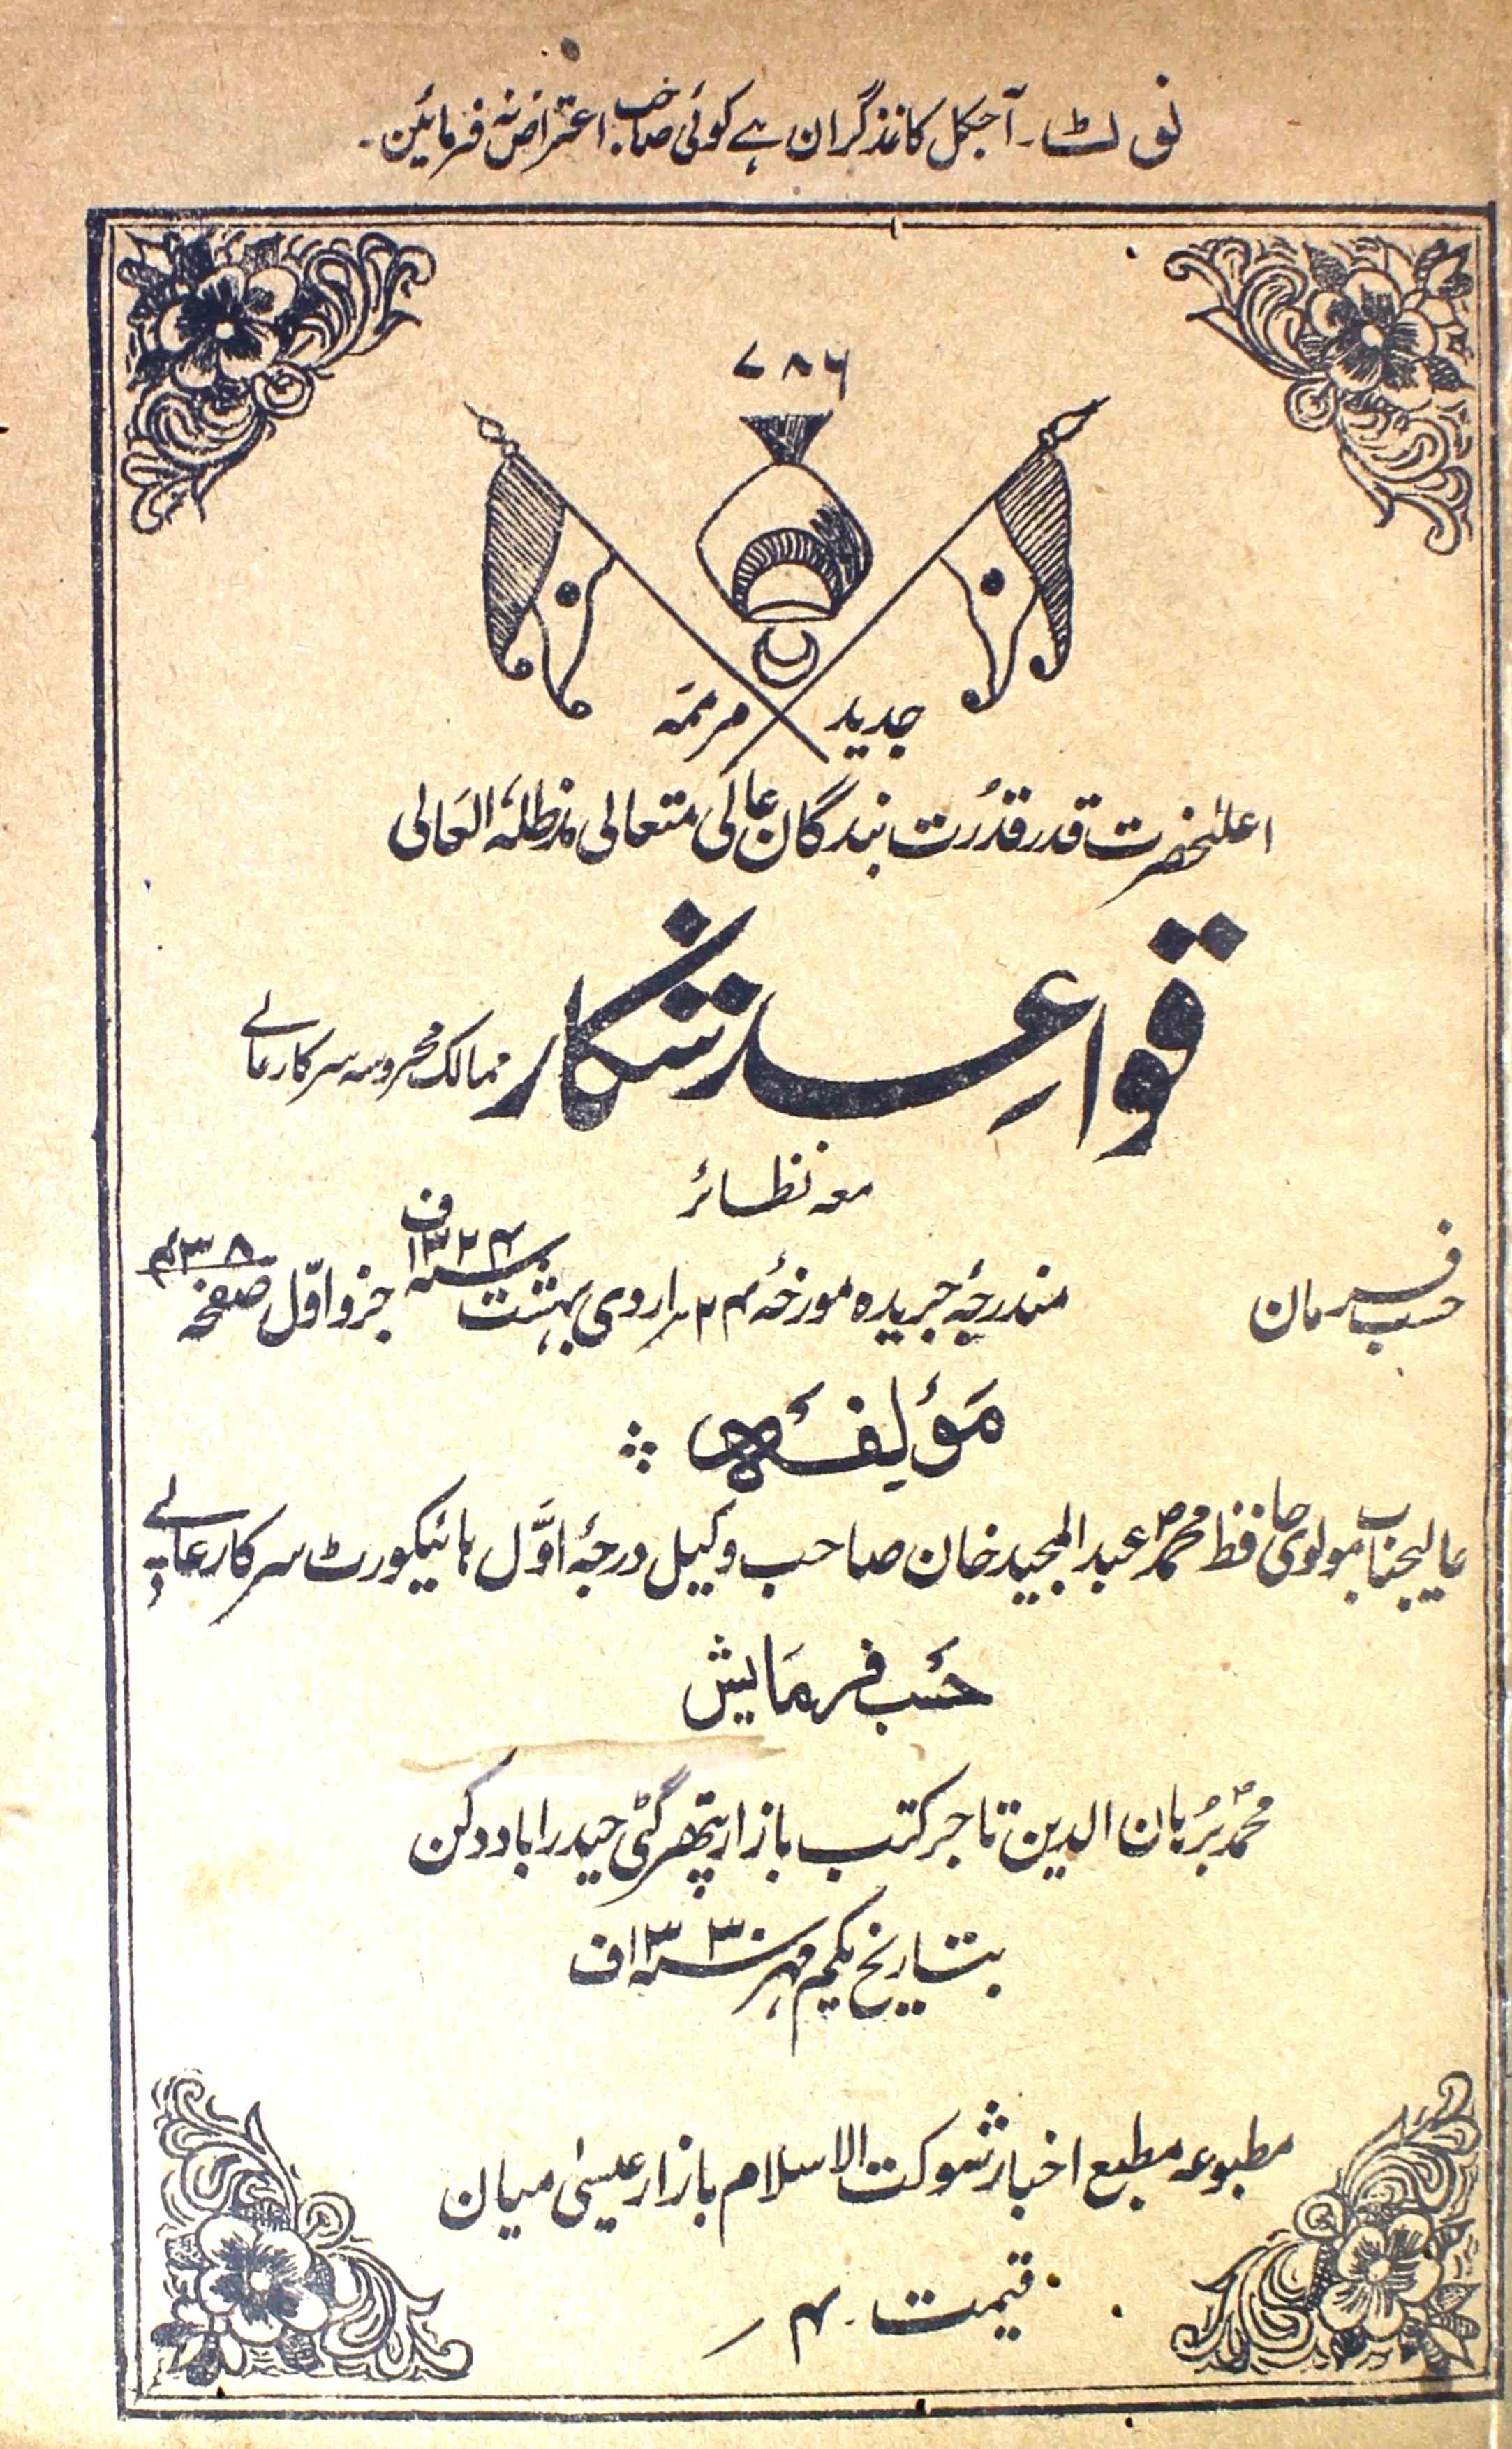 نوٹ۔ آجکل کاغذ گران ہے کوئی صاحب اعتراض نہ فرمائین۔
۷۸۶
جدید مرممہ
اعلیٰحضرت قدر قدرت بندگان عالی متعالی مدظلہ العالی
قواعد شکار ممالک محروسہ سرکار عالی
معہ نظائر
حسب فرمان مندرجۂ جریدہ مورخۂ ۲۴ اردی بہشت سنہ ۱۳۲۴ف جزو اوّل صفحہ ۴۳۸
مؤلفۂ
عالیجناب مولوی حافظ محمد عبدالمجید خان صاحب وکیل درجۂ اوّل ہائیکورٹ سرکار عالی
حسب فرمایش
محمد برہان الدین تاجر کتب بازار پتھر گٹی حیدراباد دکن
بتاریخ یکم مہر سنہ ۱۳۳۰ف
مطبوعہ مطبع اخبار شوکت الاسلام بازار عیسیٰ میان
قیمت ۴؍